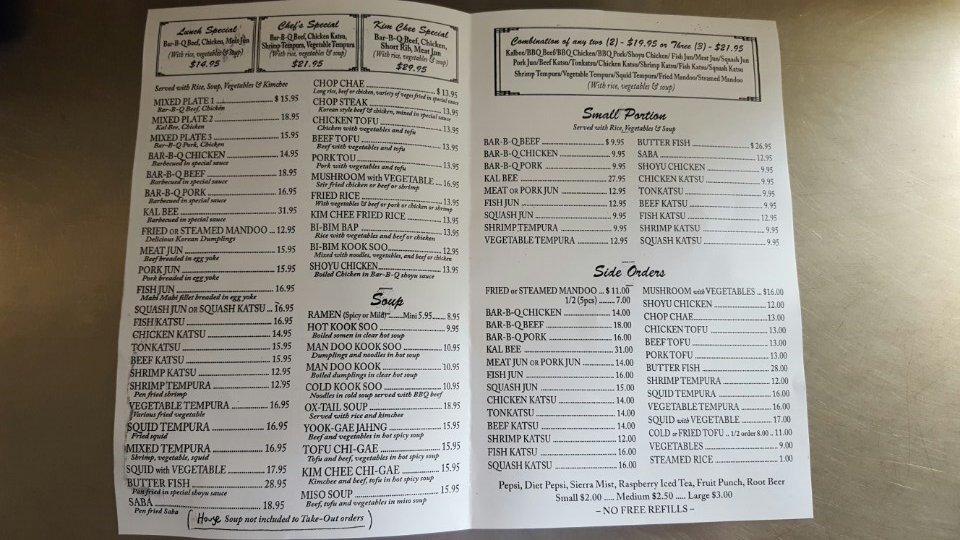 Lunch Special
Bar-B-Q Beef, Chicken, Meat Jun
(With rice, vegetables & soup)
$14.95
Chef's Special
Bar-B-Q Beef, Chicken Katsu,
Shrimp Tempura, Vegetable Tempura
(With rice, vegetables & soup)
$21.95
Kim Chee Special
Bar-B-Q Beef, Chicken,
Short Rib, Meat Jun
(With rice, vegetables & soup)
$29.95
Served with Rice, Soup, Vegetables & Kimchee
MIXED PLATE 1 $ 15.95
Bar-B-Q Beef, Chicken
MIXED PLATE 2 18.95
Kal Bee, Chicken
MIXED PLATE 3 15.95
Bar-B-Q Pork, Chicken
BAR-B-Q CHICKEN 14.95
Barbecued in special sauce
BAR-B-Q BEEF 18.95
Barbecued in special sauce
BAR-B-Q PORK 16.95
Barbecued in special sauce
KAL BEE 31.95
Barbecued in special sauce
FRIED OR STEAMED MANDOO 12.95
Delicious Korean Dumplings
MEAT JUN 15.95
Beef breaded in egg yoke
PORK JUN 15.95
Pork breaded in egg yoke
FISH JUN 16.95
Mahi Mahi fillet breaded in egg yoke
SQUASH JUN OR SQUASH KATSU 16.95
FISH KATSU 16.95
CHICKEN KATSU 14.95
TONKATSU 15.95
BEEF KATSU 15.95
SHRIMP KATSU 12.95
SHRIMP TEMPURA 12.95
Pen fried shrimp
VEGETABLE TEMPURA 16.95
Various fried vegetable
SQUID TEMPURA 16.95
Fried squid
MIXED TEMPURA 16.95
Shrimp, vegetable, squid
SQUID with VEGETABLE 17.95
BUTTER FISH 28.95
Pan fried in special shoyu sauce
SABA 18.95
Pen fried Saba
CHOP CHAE $ 13.95
Long rice, beef or chicken, variety of veges fried in special sauce
CHOP STEAK 13.95
Korean style beef & chicken, mixed in special sauce
CHICKEN TOFU 13.95
Chicken with vegetables and tofu
BEEF TOFU 13.95
Beef with vegetables and tofu
PORK TOU 13.95
Pork with vegetables and tofu
MUSHROOM with VEGETABLE 16.95
Stir fried chicken or beef or shrimp
FRIED RICE 13.95
With vegetables & beef or pork or chicken or shrimp
KIM CHEE FRIED RICE 13.95
BI-BIM BAP 13.95
Rice with vegetables and beef or chicken
BI-BIM KOOK SOO 12.95
Mixed with noodles, vegetables, and beef or chicken
SHOYU CHICKEN 13.95
Boiled Chicken in Bar-B-Q shoyu sauce
Soup
RAMEN (Spicy or Mild) Mini 5.95 8.95
HOT KOOK SOO 9.95
Boiled somen in clear hot soup
MAN DOO KOOK SOO 10.95
Dumplings and noodles in hot soup
MAN DOO KOOK 10.95
Boiled dumplings in clear hot soup
COLD KOOK SOO 10.95
Noodles in cold soup served with BBQ beef
OX-TAIL SOUP 18.95
Served with rice and kimchee
YOOK-GAE JAHNG 15.95
Beef and vegetables in hot spicy soup
TOFU CHI-GAE 15.95
Tofu and beef, vegetables in hot spicy soup
KIM CHEE CHI-GAE 15.95
Kimchee and beef, tofu in hot spicy soup
MISO SOUP 15.95
Beef, tofu and vegetables in miso soup
(House Soup not included to Take-Out orders)
Combination of any two (2) - $19.95 or Three (3) - $21.95
Kalbee/BBQ Beef/BBQ Chicken/BBQ Pork/Shoyu Chicken/ Fish Jun/Meat Jun/Squash Jun
Pork Jun/Beef Katsu/Tonkatsu/Chicken Katsu/Shrimp Katsu/Fish Katsu/Squash Katsu
Shrimp Tempura/Vegetable Tempura/Squid Tempura/Fried Mandoo/Steamed Mandoo
(With rice, vegetables & soup)
Small Portion
Served with Rice, Vegetables & Soup
BAR-B-Q BEEF $ 9.95
BAR-B-Q CHICKEN 9.95
BAR-B-Q PORK 9.95
KAL BEE 27.95
MEAT OR PORK JUN 12.95
FISH JUN 12.95
SQUASH JUN 9.95
SHRIMP TEMPURA 9.95
VEGETABLE TEMPURA 12.95
BUTTER FISH $ 26.95
SABA 12.95
SHOYU CHICKEN 9.95
CHICKEN KATSU 9.95
TONKATSU 9.95
BEEF KATSU 9.95
FISH KATSU 12.95
SHRIMP KATSU 9.95
SQUASH KATSU 9.95
Side Orders
FRIED or STEAMED MANDOO $ 11.00
1/2 (5pcs) 7.00
BAR-B-Q CHICKEN 14.00
BAR-B-Q BEEF 18.00
BAR-B-Q PORK 16.00
KAL BEE 31.00
MEAT JUN or PORK JUN 14.00
FISH JUN 16.00
SQUASH JUN 15.00
CHICKEN KATSU 14.00
TONKATSU 14.00
BEEF KATSU 14.00
SHRIMP KATSU 12.00
FISH KATSU 16.00
SQUASH KATSU 16.00
MUSHROOM with VEGETABLES $16.00
SHOYU CHICKEN 12.00
CHOP CHAE 13.00
CHICKEN TOFU 13.00
BEEF TOFU 13.00
PORK TOFU 13.00
BUTTER FISH 28.00
SHRIMP TEMPURA 12.00
SQUID TEMPURA 16.00
VEGETABLE TEMPURA 16.00
SQUID with VEGETABLE 17.00
COLD or FRIED TOFU 1/2 order 8.00 11.00
VEGETABLES 9.00
STEAMED RICE 1.00
Pepsi, Diet Pepsi, Sierra Mist, Raspberry Iced Tea, Fruit Punch, Root Beer
Small $2.00 ..... Medium $2.50 ..... Large $3.00
– NO FREE REFILLS –